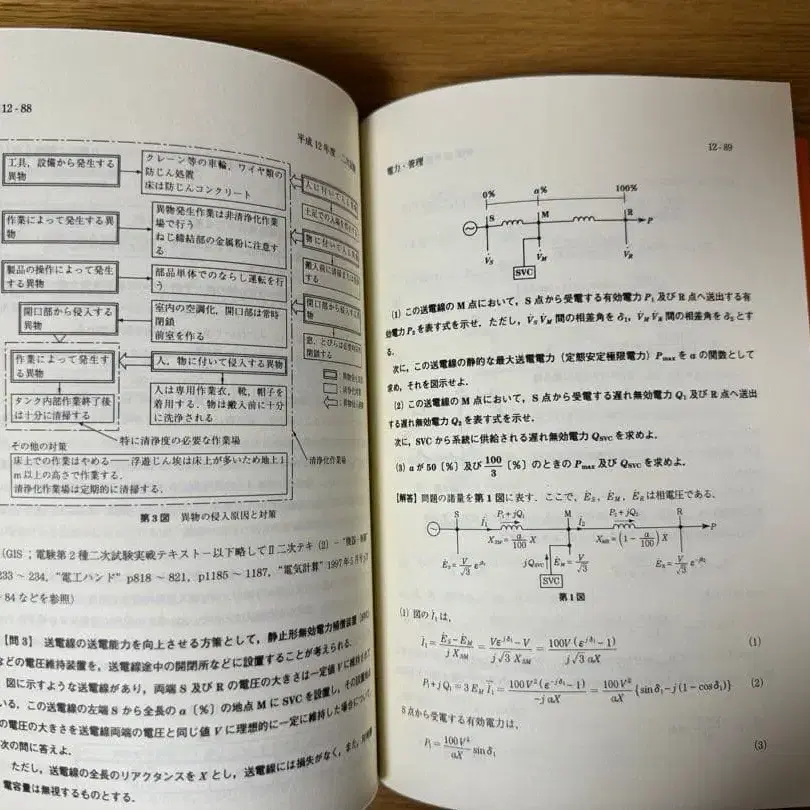 12-88
平成12年度 二次試験
工具、設備から発生する
異物
クレーン等の車輪、ワイヤ類の
防じん処置
床は防じんコンクリート
作業によって発生する異
物
異物発生作業は非清浄化作業
場で行う
ねじ締結部の金属粉に注意す
る
製品の操作によって発生す
る異物
部品単体でのならし運転を行
う
開口部から侵入する
異物
室内の空調化、開口部は常時
閉鎖
前室を作る
作業によって発生す
る異物
人、物に付いて侵入する異物
タンク内部作業終了後
は十分に清掃する
人は専用作業衣、靴、帽子を
着用する．物は搬入前に十分
に洗浄される
特に清浄度の必要な作業場
清浄化作業場
その他の対策
床上での作業はやめる──浮遊じん埃は床上が多いため地上1
m以上の高さで作業する．
清浄化作業場は定期的に清掃する．
第3図 異物の侵入原因と対策
(GIS；電験第2種二次試験実戦テキスト－以下略してⅡ二次テキ(2)－
233～234, “電工ハンド” p818～821, p1185～1187, “電気計算” 1997年5月
84などを参照)
【問3】 送電線の送電能力を向上させる方策として，静止形無効電力補償装置
などの電圧維持装置を，送電線途中の開閉所などに設置することが考えられる．
図に示すような送電線があり，両端S及びRの電圧の大きさは一定値Vに維持されて
いる．この送電線の左端Sから全長のa〔%〕の地点MにSVCを設置し，その設置
の電圧の大きさを送電線両端の電圧と同じ値Vに理想的に一定に維持した場合について，
次の問に答えよ．
ただし，送電線の全長のリアクタンスをXとし，送電線には損失がなく，また，
電容量は無視するものとする．
電力・管理
12-89
0% a% 100%
S M R P
V̇S V̇M V̇R
SVC
(1) この送電線のM点において，S点から受電する有効電力P₁及びR点へ送出する有
効電力P₂を表す式を示せ．ただし，V̇S V̇M間の相差角をδ₁，V̇M V̇R間の相差角をδ₂とす
る．
次に，この送電線の静的な最大送電電力（定態安定極限電力）Pmaxをaの関数として
求め，それを図示せよ．
(2) この送電線のM点において，S点から受電する遅れ無効電力Q₁及びR点へ送出
する遅れ無効電力Q₂を表す式を示せ．
次に，SVCから系統に供給される遅れ無効電力QSVCを求めよ．
(3) aが50〔%〕及び100/3〔%〕のときのPmax及びQSVCを求めよ．
【解答】 問題の諸量を第1図に表す．ここで，ĖS，ĖM，ĖRは相電圧である．
S İ₁ P₁+jQ₁ M İ₂ P₂+jQ₂ R P
XSM=a/100 X XMR=(1−a/100)X
jQSVC
SVC
第1図
(1) 図のİ₁は，
İ₁ = (ĖS−ĖM)/(jXSM) = (Vε^{jδ₁}−V)/(j√3 XSM) = 100V(ε^{jδ₁}−1)/(j√3 aX) (1)
P₁+jQ₁ = 3ĖM Ī₁ = 100V²(ε^{−jδ₁}−1)/(−jaX) = 100V²/aX {sinδ₁−j(1−cosδ₁)} (2)
S点から受電する有効電力は，
P₁ = 100V²/aX sinδ₁ (3)